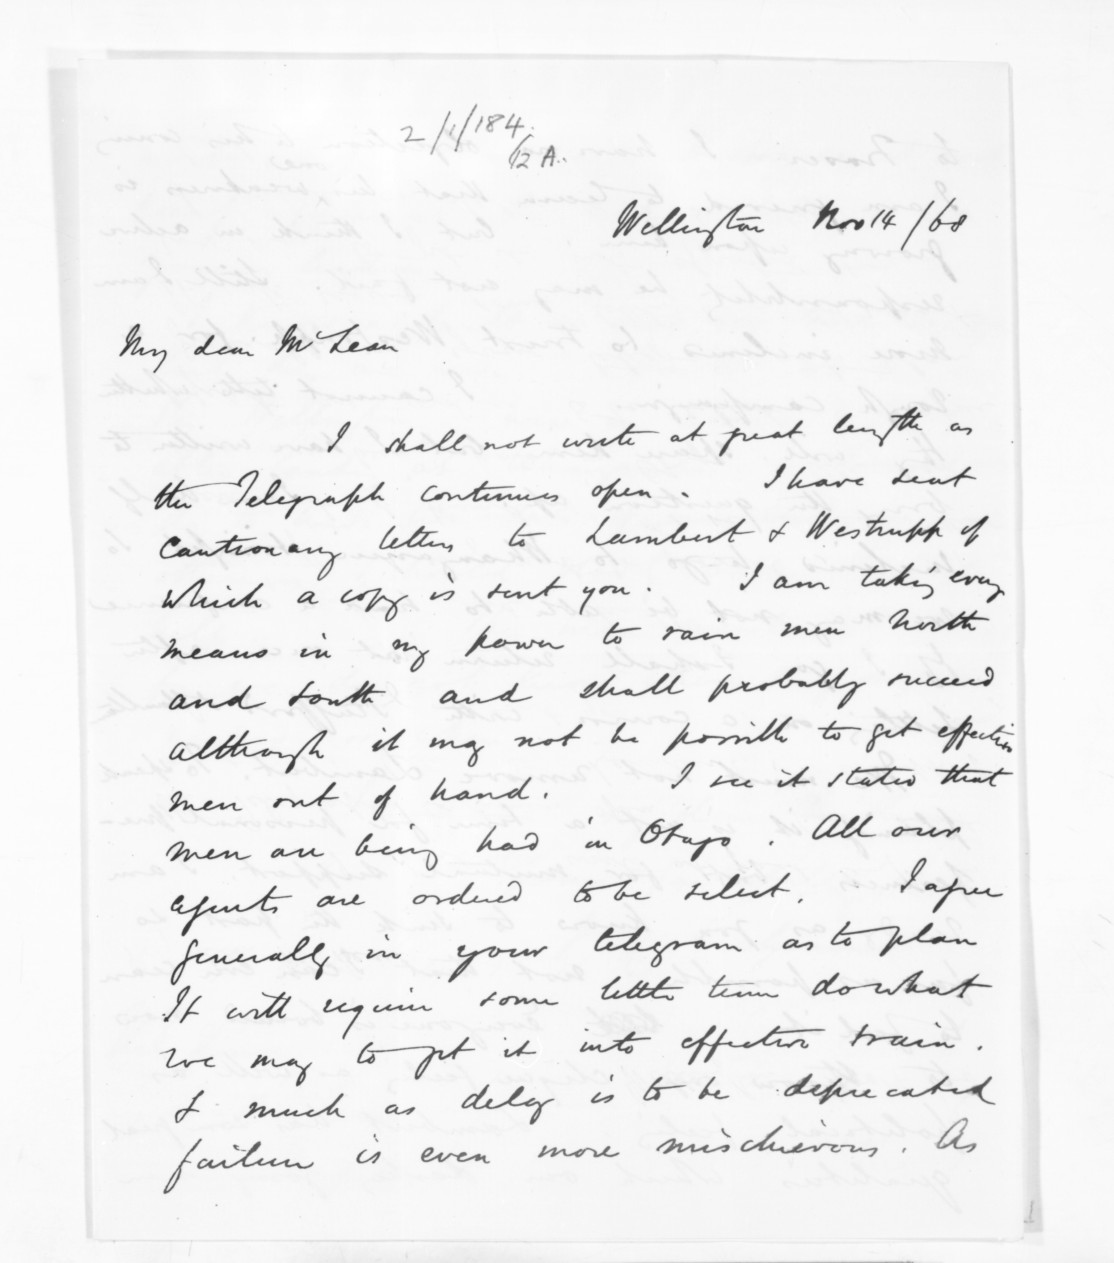 2/1/184.
12 A.
Wellington Nov 14/68
My dear McLean
I shall not write at great length as
the Telegraph continues open. I have sent
Cautionary letters to Lambert & Westrupp of
which a copy is sent you. I am taking every
means in my power to raise men North
and South and shall probably succeed
although it may not be possible to get effective
men out of hand. I see it stated that
men are being had in Otago. All our
agents are ordered to be select. I agree
generally in your telegram as to plan
It will require some little time do what
we may to get it into effective train.
& much as delay is to be deprecated
failure is even more mischievous. As